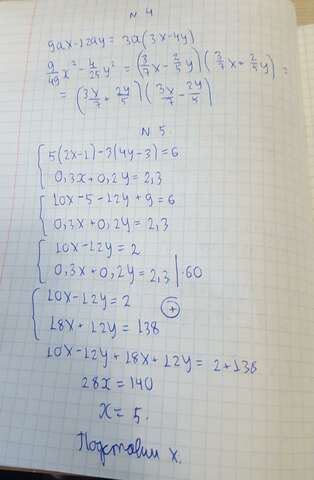 N 4
9ax-12ay = 3a(3x-4y)
9/49 x² - 4/25 y² = (3/7 x - 2/5 y)(3/7 x + 2/5 y) =
= (3x/7 + 2y/5)(3x/7 - 2y/5)
N 5
{ 5(2x-1)-3(4y-3)=6
0,3x+0,2y=2,3
{ 10x-5-12y+9=6
0,3x+0,2y=2,3
{ 10x-12y=2
0,3x+0,2y=2,3 | ·60
{ 10x-12y=2 (+)
18x+12y=138
10x-12y+18x+12y= 2+138
28x=140
x=5.
Подставим x.